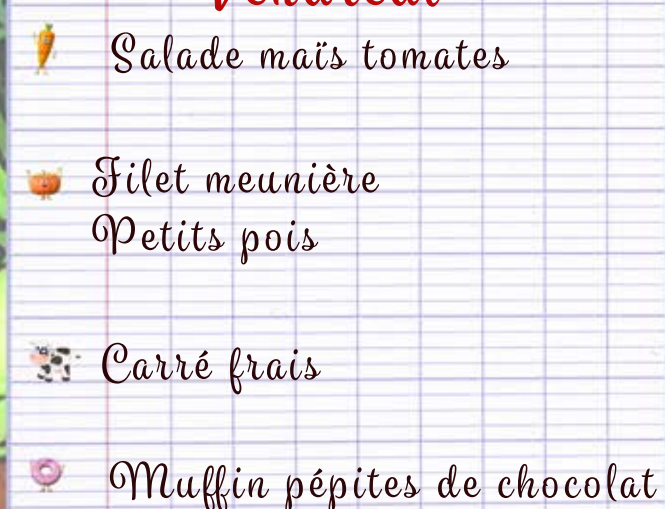 Vendredi
Salade maïs tomates
Filet meunière
Petits pois
Carré frais
Muffin pépites de chocolat